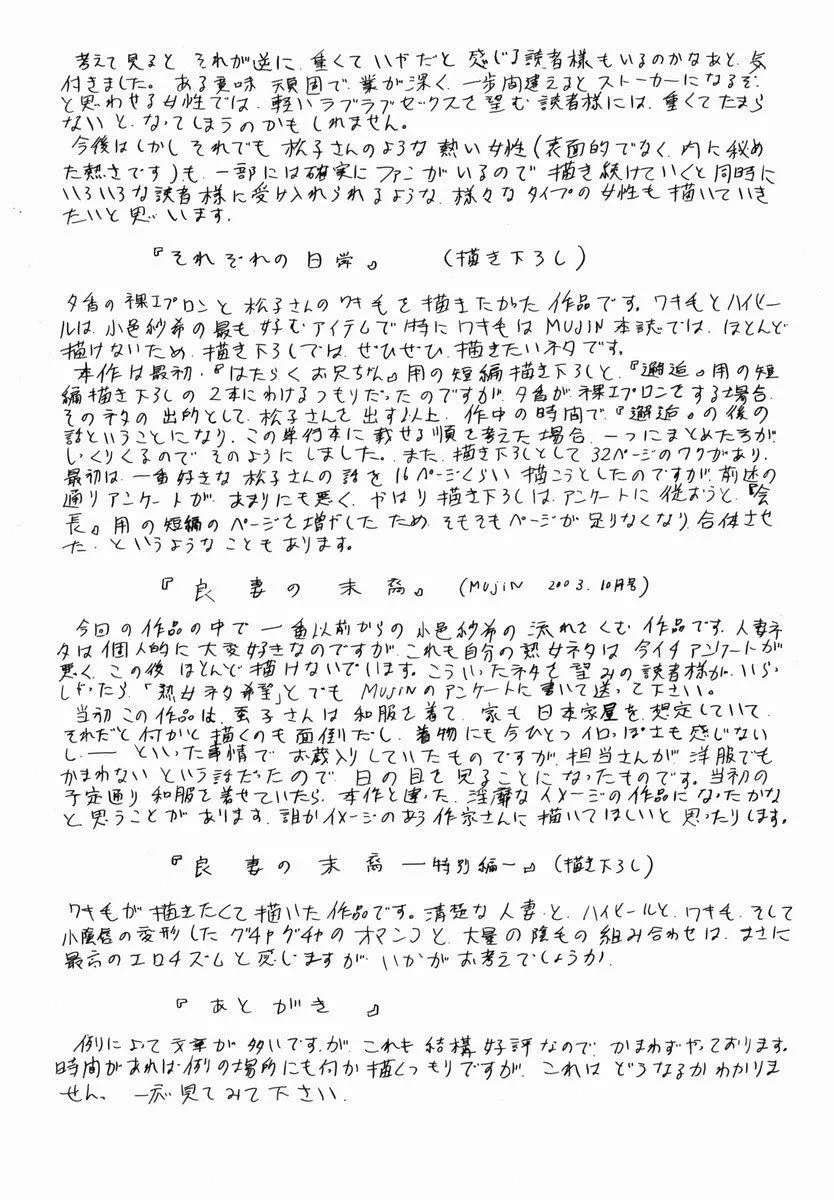 考えて見ると それが逆に、重くていやだと 感じる読者様もいるのかなあと、気
付きました。ある意味 頑固で、業が深く、一歩間違えるとストーカーになるぞ
と思わせる女性では、軽いラブラブセックスを望む読者様には、重くてたまら
ないと、なってしまうのかもしれません。
今後はしかし それでも 松子さんのような 熱い女性(表面的でなく、内に秘め
た熱さです)も、一部には確実にファンがいるので 描き続けていくと同時に
いろいろな読者様に受け入れられるような、様々なタイプの女性も描いていき
たいと思います。
『それぞれの日常』 (描き下ろし)
夕香の裸エプロンと 松子さんのワキ毛を描きたかった作品です。ワキ毛とハイヒー
ルは、小邑紗希の最も好むアイテムで特にワキ毛はMUJIN本誌では、ほとんど
描けないため、描き下ろしでは、ぜひぜひ、描きたいネタです。
本作は最初、『はたらくお兄ちゃん』用の短編描き下ろしと、『邂逅』用の短
編描き下ろしの 2本にわけるつもりだったのですが、夕香が裸エプロンをする場合、
そのネタの出所として、松子さんを出す以上、作中の時間で、『邂逅』の後の
話ということになり、この単行本に載せる順を考えた場合、一つにまとめた方が
しっくりくるので そのようにしました。また、描き下ろしとして32ページのワクがあり、
最初は、一番好きな 松子さんの話を16ページくらい描こうとしたのですが、前述の
通りアンケートが、あまりにも悪く、やはり描き下ろしは、アンケートに従おうと、『会
長』用の短編のページを増やしたため、そもそもページが足りなくなり、合体させ
た、というようなこともあります。
『良妻の末裔』 (MUJIN 2003.10月号)
今回の作品の中で 一番以前からの小邑紗希の流れをくむ作品です。人妻ネ
タは個人的に大変好きなのですが、これも自分の熟女ネタは今イチアンケートが
悪く、この後 ほとんど描けないでいます。こういったネタを望みの読者様が、いらっ
しゃったら、「熟女ネタ希望」とでも MUJINのアンケートに書いて送って下さい。
当初この作品は、子さんは和服を着て、家も日本家屋を想定していて、
それだと何かと描くのも面倒だし、着物にも今ひとつイロっぽさも感じない
し、―― といった事情で お蔵入りしていたものですが、担当さんが、洋服でも
かまわないという話だったので 日の目を見ることになったものです。当初の
予定通り 和服を着せていたら、本作と違った、淫靡なイメージの作品になったかな
と思うことがあります。誰かイメージのあう作家さんに描いてほしいと思ったりします。
『良妻の末裔 ―特別編―』(描き下ろし)
ワキ毛が描きたくて描いた作品です。清楚な人妻と、ハイヒールと、ワキ毛、そして
小陰唇の変形したグチャグチャのオマンコと、大量の陰毛の組み合わせは、まさに
最高のエロチズムと感じますが、いかがお考えでしょうか。
『あとがき』
例によって文章が多いですが、これも結構好評なので かまわずやっております。
時間があれば例の場所にも何か描くつもりですが、これは どうなるかわかりま
せん。 一応見てみて下さい。